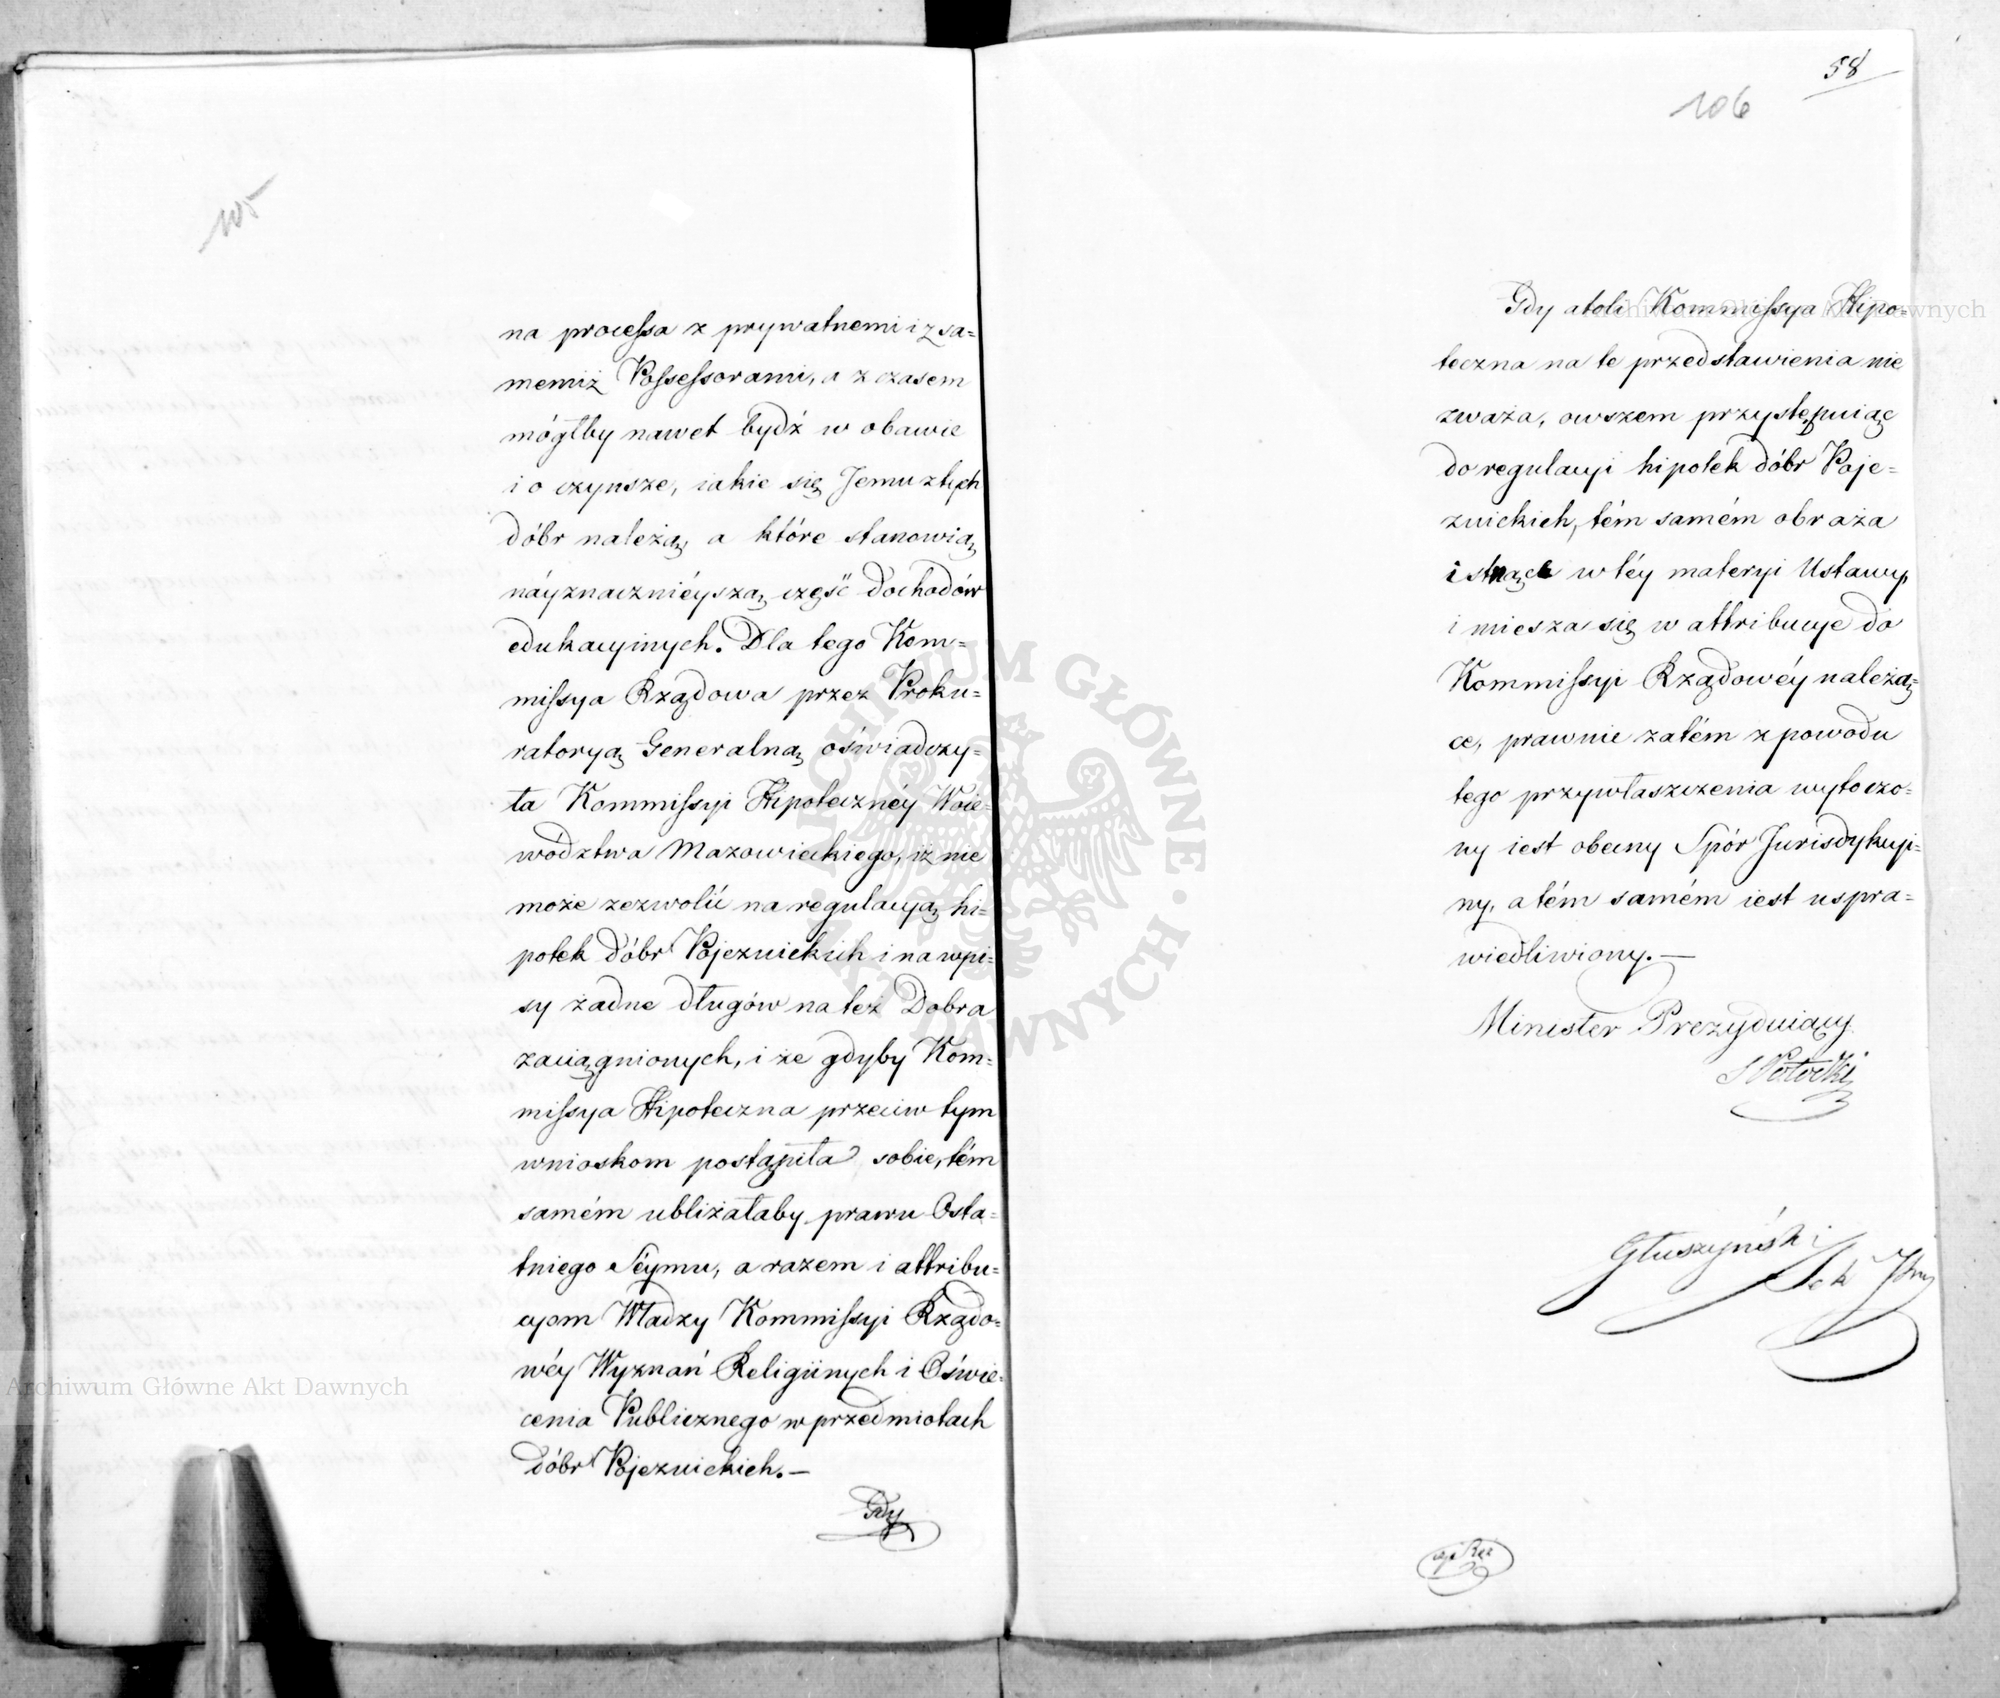 105
na processa z prywatnemi i z sa=
memiż Possessorami, a z czasem
mógłby nawet bydź w obawie
i o czynsze, iakie się Jemu z tych
dóbr należą, a które stanowią
náyznaczniéyszą część dochodów
edukacyinych. Dla tego Kom=
missya Rządowa przez Proku=
ratoryą Generalną oświadczy=
ła Kommissyi Hipoteczney Woie=
wództwa Mazowieckiego, iż nie
może zezwolić na regulacyą hi=
potek dóbr Pojezuickich i na wpi=
sy żadne długów na też Dobra
zaciągnionych, i że gdyby Kom=
missya Hipoteczna przeciw tym
wnioskom postąpiła sobie, tém
samém ubliżałaby prawu Osta=
tniego Séymu, a razem i attribu=
cyom Władzy Kommissyi Rządo=
wéy Wyznań Religiinych i Oświe=
cenia Publicznego w przedmiotach
dóbr Pojezuickich.—
Gdy
58
106
Gdy atoli Kommissya Hipo=
teczna na te przedstawienia nie
zważa, owszem przystępuiąc
do regulacyi hipotek dóbr Poje=
zuickich, tém samém obraża
w téy materyi Ustawy,
i miesza się w attribucye do
Kommissyi Rządowéy należą=
ce, prawnie zatém z powodu
tego przywłaszczenia wytoczo=
ny iest obecny Spór Jurisdykcyi=
ny, a tém samém iest uspra=
wiedliwiony.—
Minister Prezyduiący
S Potocki
Głuszyński
Sek
Archiwum Główne Akt Dawnych
Archiwum Główne Akt Dawnych
ARCHIWUM GŁÓWNE · AKT DAWNYCH ·